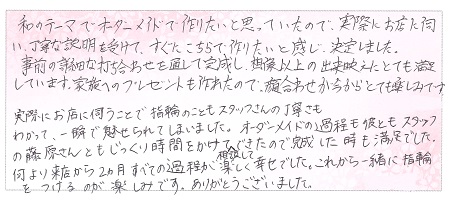 和のテーマでオーダーメイドで作りたいと思っていたので、実際にお店に伺
い、丁寧な説明を受けて、すぐにこちらで作りたいと感じ、決定しました。
事前の詳細な打ち合わせを通して完成し、想像以上の出来映えにとても満足
しています。家族へのプレゼントも作れたので、顔合わせが今からとても楽しみです
実際にお店に伺うことで指輪のこともスタッフさんの丁寧さも
わかって、一瞬で魅せられてしまいました。オーダーメイドの過程も彼ともスタッフ
の藤原さんともじっくり時間をかけて相談してできたので完成した時も満足でした。
何より来店から2ヵ月すべての過程が楽しく幸せでした。これから一緒に指輪
をつけるのが楽しみです。ありがとうございました。